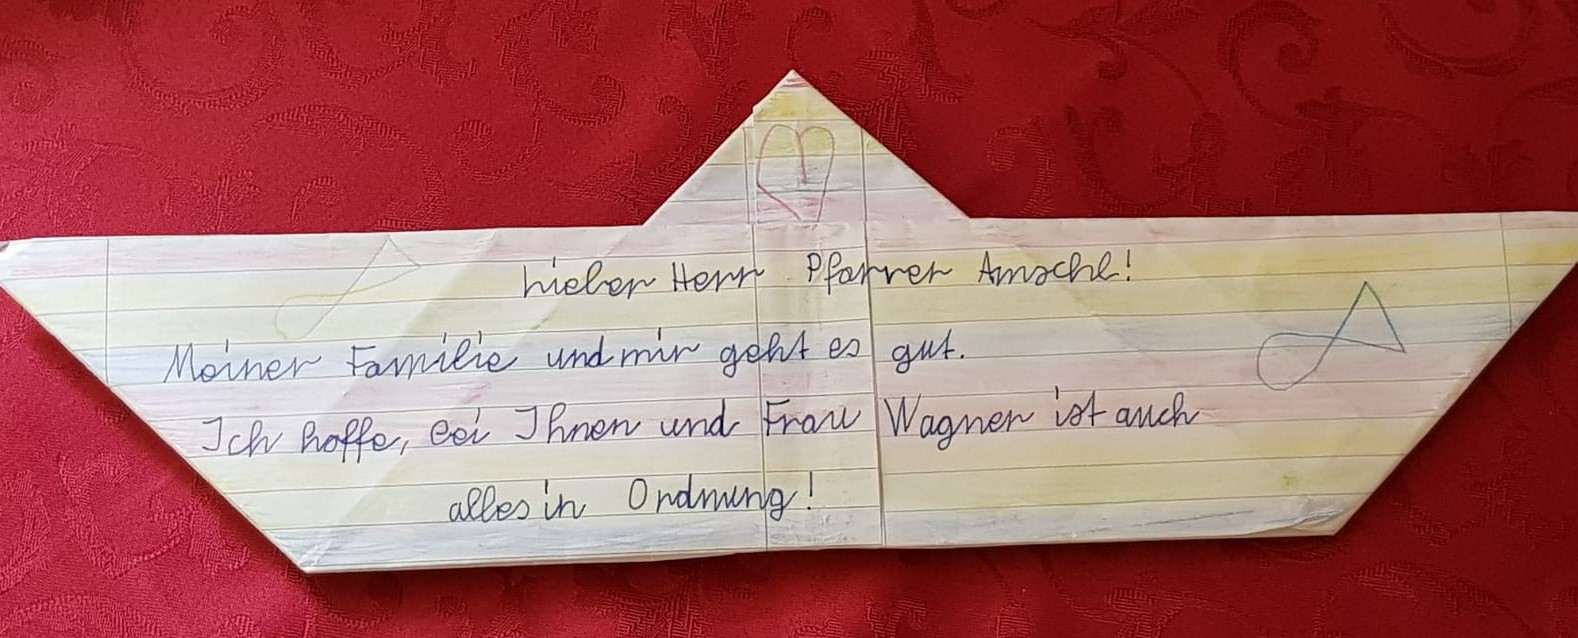 Lieber Herr Pfarrer Amschl!
Meiner Familie und mir geht es gut.
Ich hoffe, bei Ihnen und Frau Wagner ist auch
alles in Ordnung!